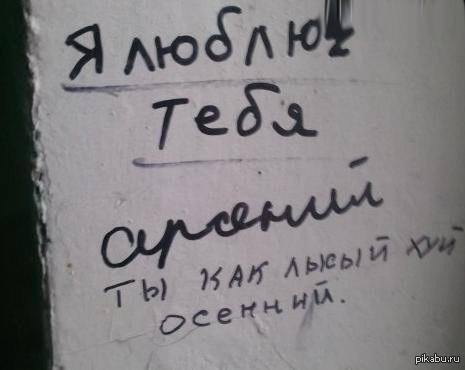 Я люблю
тебя
арсений
ты как лысый хуй
осенний.
pikabu.ru